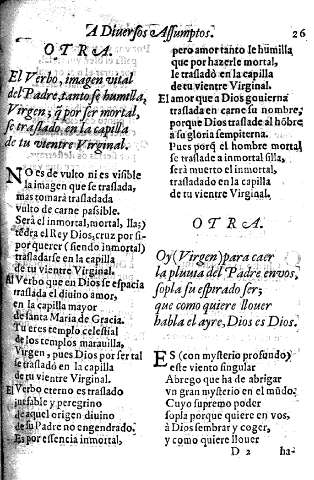 A Diuersos Assumptos. 26
OTRA.
El Verbo, imagen vital
del Padre, tanto se humilla,
Virgen; q̃ por ser mortal,
se traslado en la capilla
de tu vientre Virginal.
NO es de vulto ni es visible
la imagen que se traslada,
mas tomarà trasladada
vulto de carne passible.
Serà el inmortal, mortal,
tēdrà el Rey Dios, cruz por si-
por querer (siendo inmortal)
trasladarse en la capilla
de tu vientre Virginal.
Al Verbo que en Dios se espacia
traslada el diuino amor,
en la capilla mayor
de santa Maria de Gracia.
Tu eres templo celestial
de los templos marauilla,
Virgen, pues Dios por ser tal
le traslada en la capilla
de tu vientre Virginal.
El Verbo eterno es traslado
inefable y peregrino
de aquel origen diuino
de su Padre no engendrado.
Es por essencia inmortal,
pero amor tanto le humilla,
que por hazerle mortal,
le trasladò en la capilla
de tu vientre Virginal.
El amor que a Dios gouierna
traslada en carne su nombre,
porque Dios traslade al hōbre
a su gloria sempiterna.
Pues porq̃ el hombre mortal
se traslade a inmortal silla,
serà muerto el inmortal,
trasladado en la capilla
de tu vientre Virginal.
OTRA.
Oy (Virgen) para caer
la pluuia del Padre en vos,
sopla su espirado ser;
que como quiere llouer
habla el ayre, Dios es Dios.
ES (con mysterio profundo)
este viento singular
Abrego que ha de abrigar
vn gran mysterio en el mūdo.
Cuyo supremo poder
sopla porque quiere en vos,
à Dios sembrar y coger,
y como quiere llouer
D 2 ha-